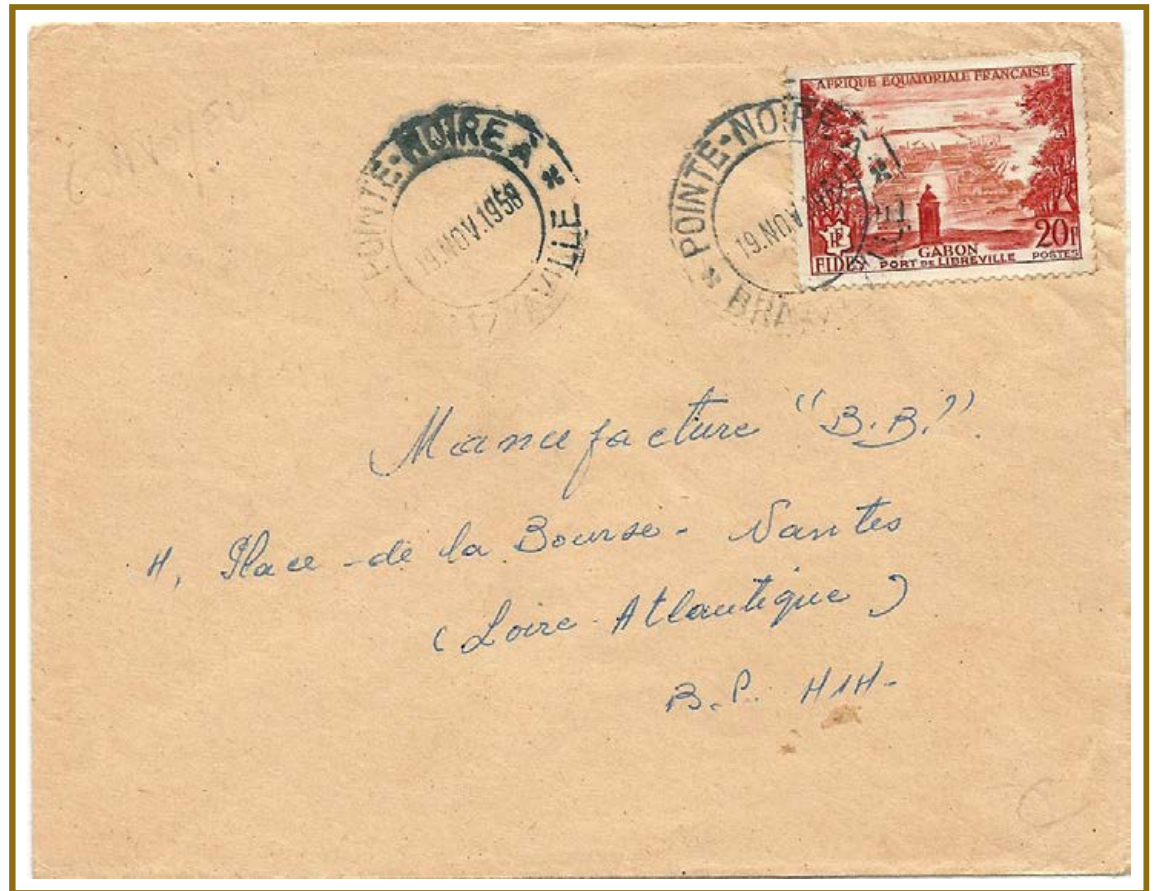 POINTE-NOIRE A * BRAZZAVILLE *
19. NOV. 1958
POINTE-NOIRE A * BRAZZAVILLE *
19. NOV. 1958
AFRIQUE EQUATORIALE FRANÇAISE
RF
FIDES
GABON
PORT DE LIBREVILLE
20F
POSTES
Manufacture "B.B."
4, Place de la Bourse - Nantes
(Loire-Atlantique)
B.P. 414-